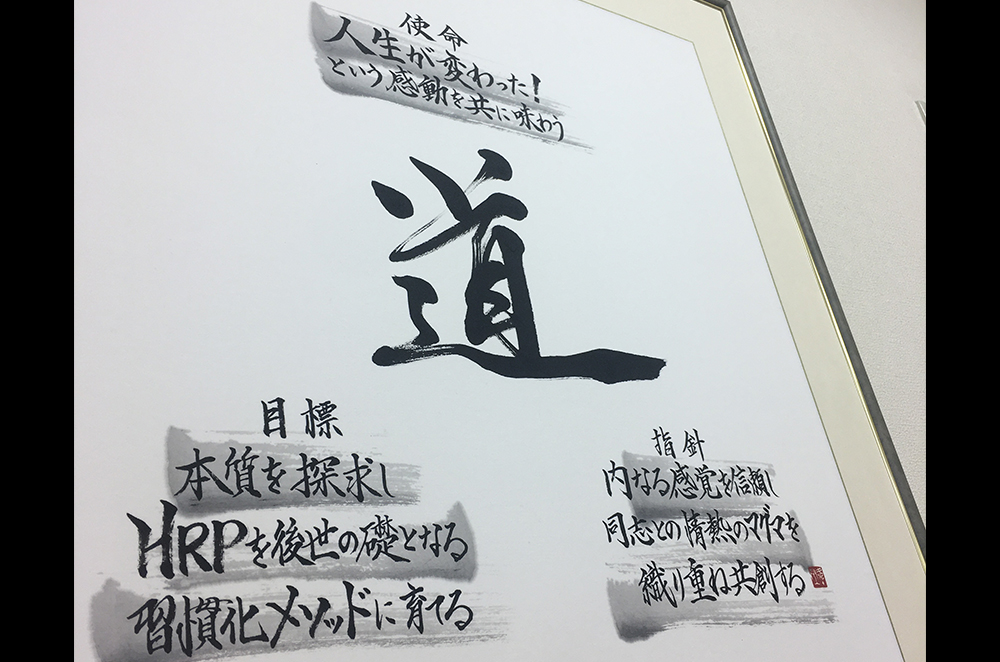 使命
人生が変わった!
という感動を共に味わう
道
目標
本質を探求し
HRPを後世の礎となる
習慣化メソッドに育てる
指針
内なる感覚を信頼し
同志との情熱のマグマを
織り重ね共創する